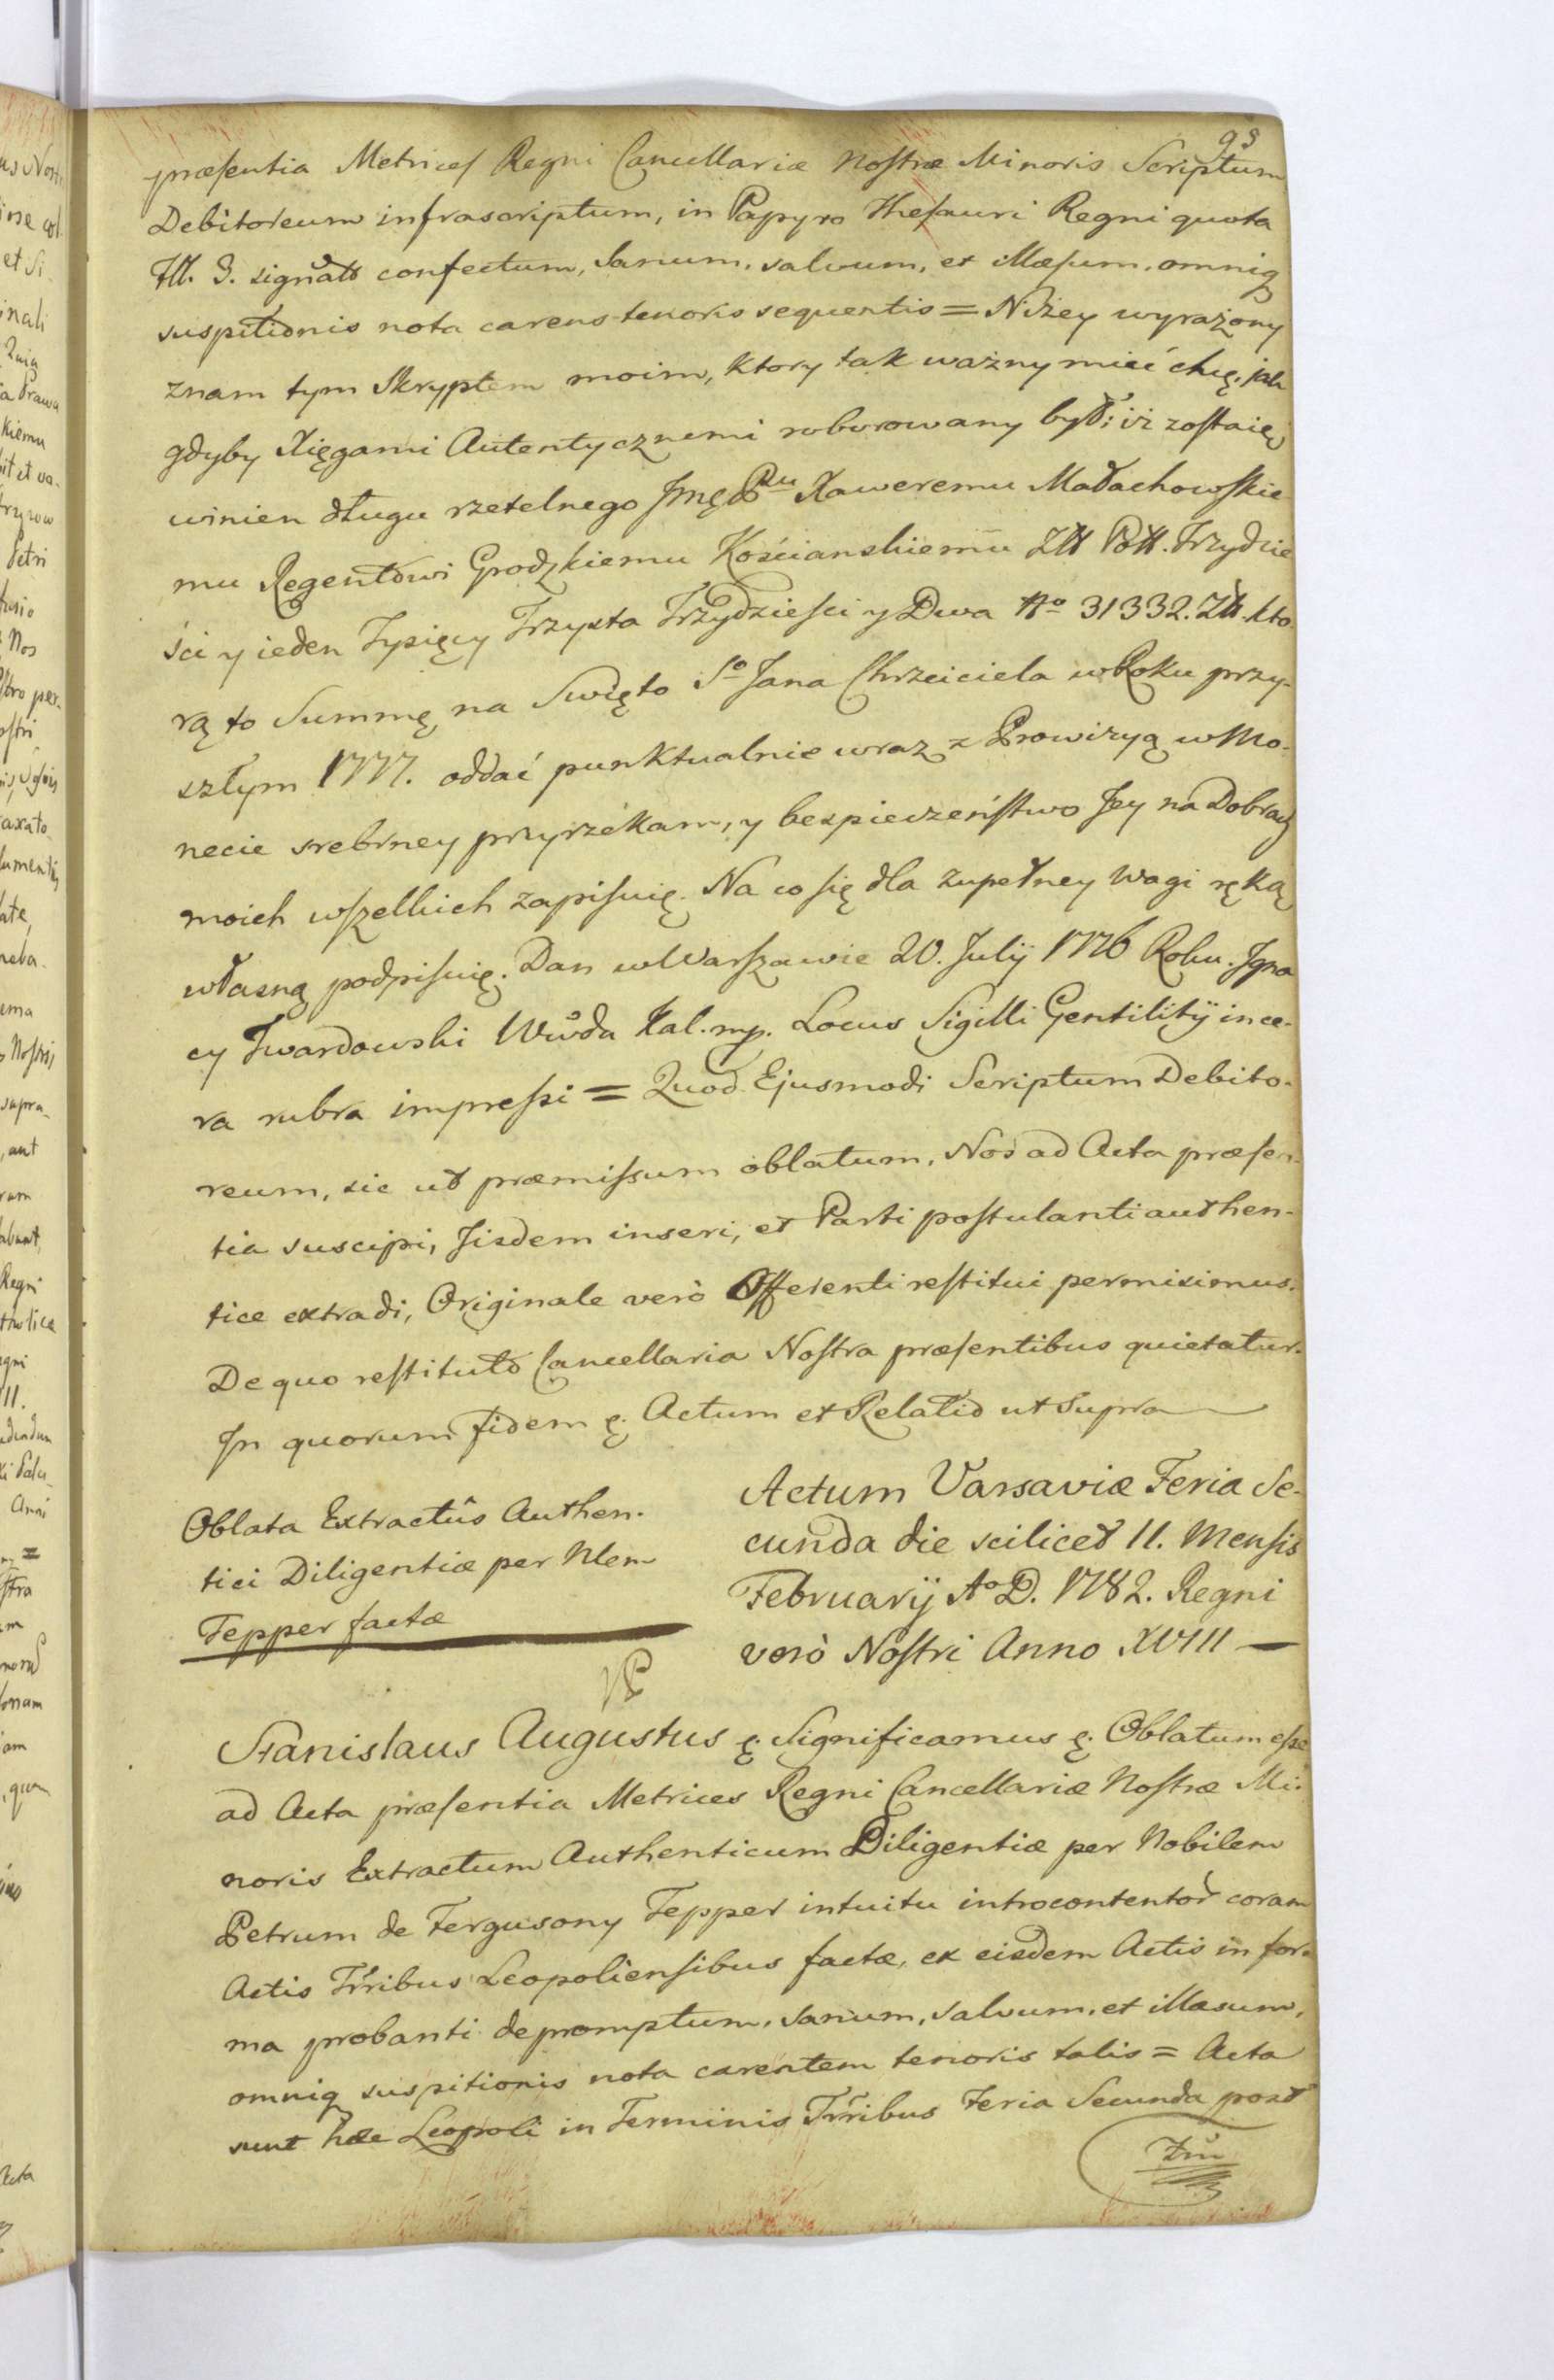 93
præsentia Metrices Regni Cancellariæ Nostræ Minoris Scriptum
Debitoreum infrascriptum, in Papyro Thesauri Regni quota
Fll. 3. signato confectum, Sanum, salvum, et illæsum, omniq
suspitionis nota carens tenoris sequentis = Niżey wyrażony
znam tym Skryptem moim, ktory tak ważny mieć chcę, jak
gdyby Xięgami Autentycznemi roborowany był: iż zostaię
winien długu rzetelnego Jmć Pu Xaweremu Małachowskie
mu Regentowi Grodzkiemu Kościanskiemu Złł Poll. Trzydzie
ści y ieden Tysięcy Trzysta Trzydzieści y Dwa No 31332. Złł. kto
rą to Summę na Swięto So Jana Chrzciciela w Roku przy-
szłym 1777. oddać punktualnie wraz z Prowizyą w Mo-
necie srebrney przyrzekam, y bespieczeństwo Jey na Dobrach
moich wszelkich zapisuię. Na co się dla zupełney Wagi ręką
własną podpisuię. Dan w Warszawie 20. Julij 1776 Roku. Jgna
cy Twardowski Wwda Kal. mp. Locus Sigilli Gentilitij in ce-
ra rubra impressi = Quod Ejusmodi Scriptum Debito-
reum, sic ut præmissum oblatum, Nos ad Acta præsen-
tia suscipi, Jisdem inseri, et Parti postulanti authen-
tice extradi, Originale verò Offerenti restitui permisimus.
De quo restituto Cancellaria Nostra præsentibus quietatur.
Jn quorum fidem &. Actum et Relatio ut Supra
Oblata Extractûs Authen-
tici Diligentiæ per Nlem
Tepper factæ
Actum Varsaviæ Feria Se-
cunda die scilicet 11. Mensis
Februarij Ao D. 1782. Regni
verò Nostri Anno XVIII
Stanislaus Augustus &. Significamus &. Oblatum esse
ad Acta præsentia Metrices Regni Cancellariæ Nostræ Mi-
noris Extractum Authenticum Diligentiæ per Nobilem
Petrum de Fergusony Tepper intuitu introcontentor coram
Actis Trribus Leopoliensibus factæ, ex eisdem Actis in for-
ma probanti depromptum, sanum, salvum, et illæsum,
omniq suspitionis nota carentem tenoris talis = Acta
sunt hæc Leopoli in Terminis Trribus Feria Secunda post